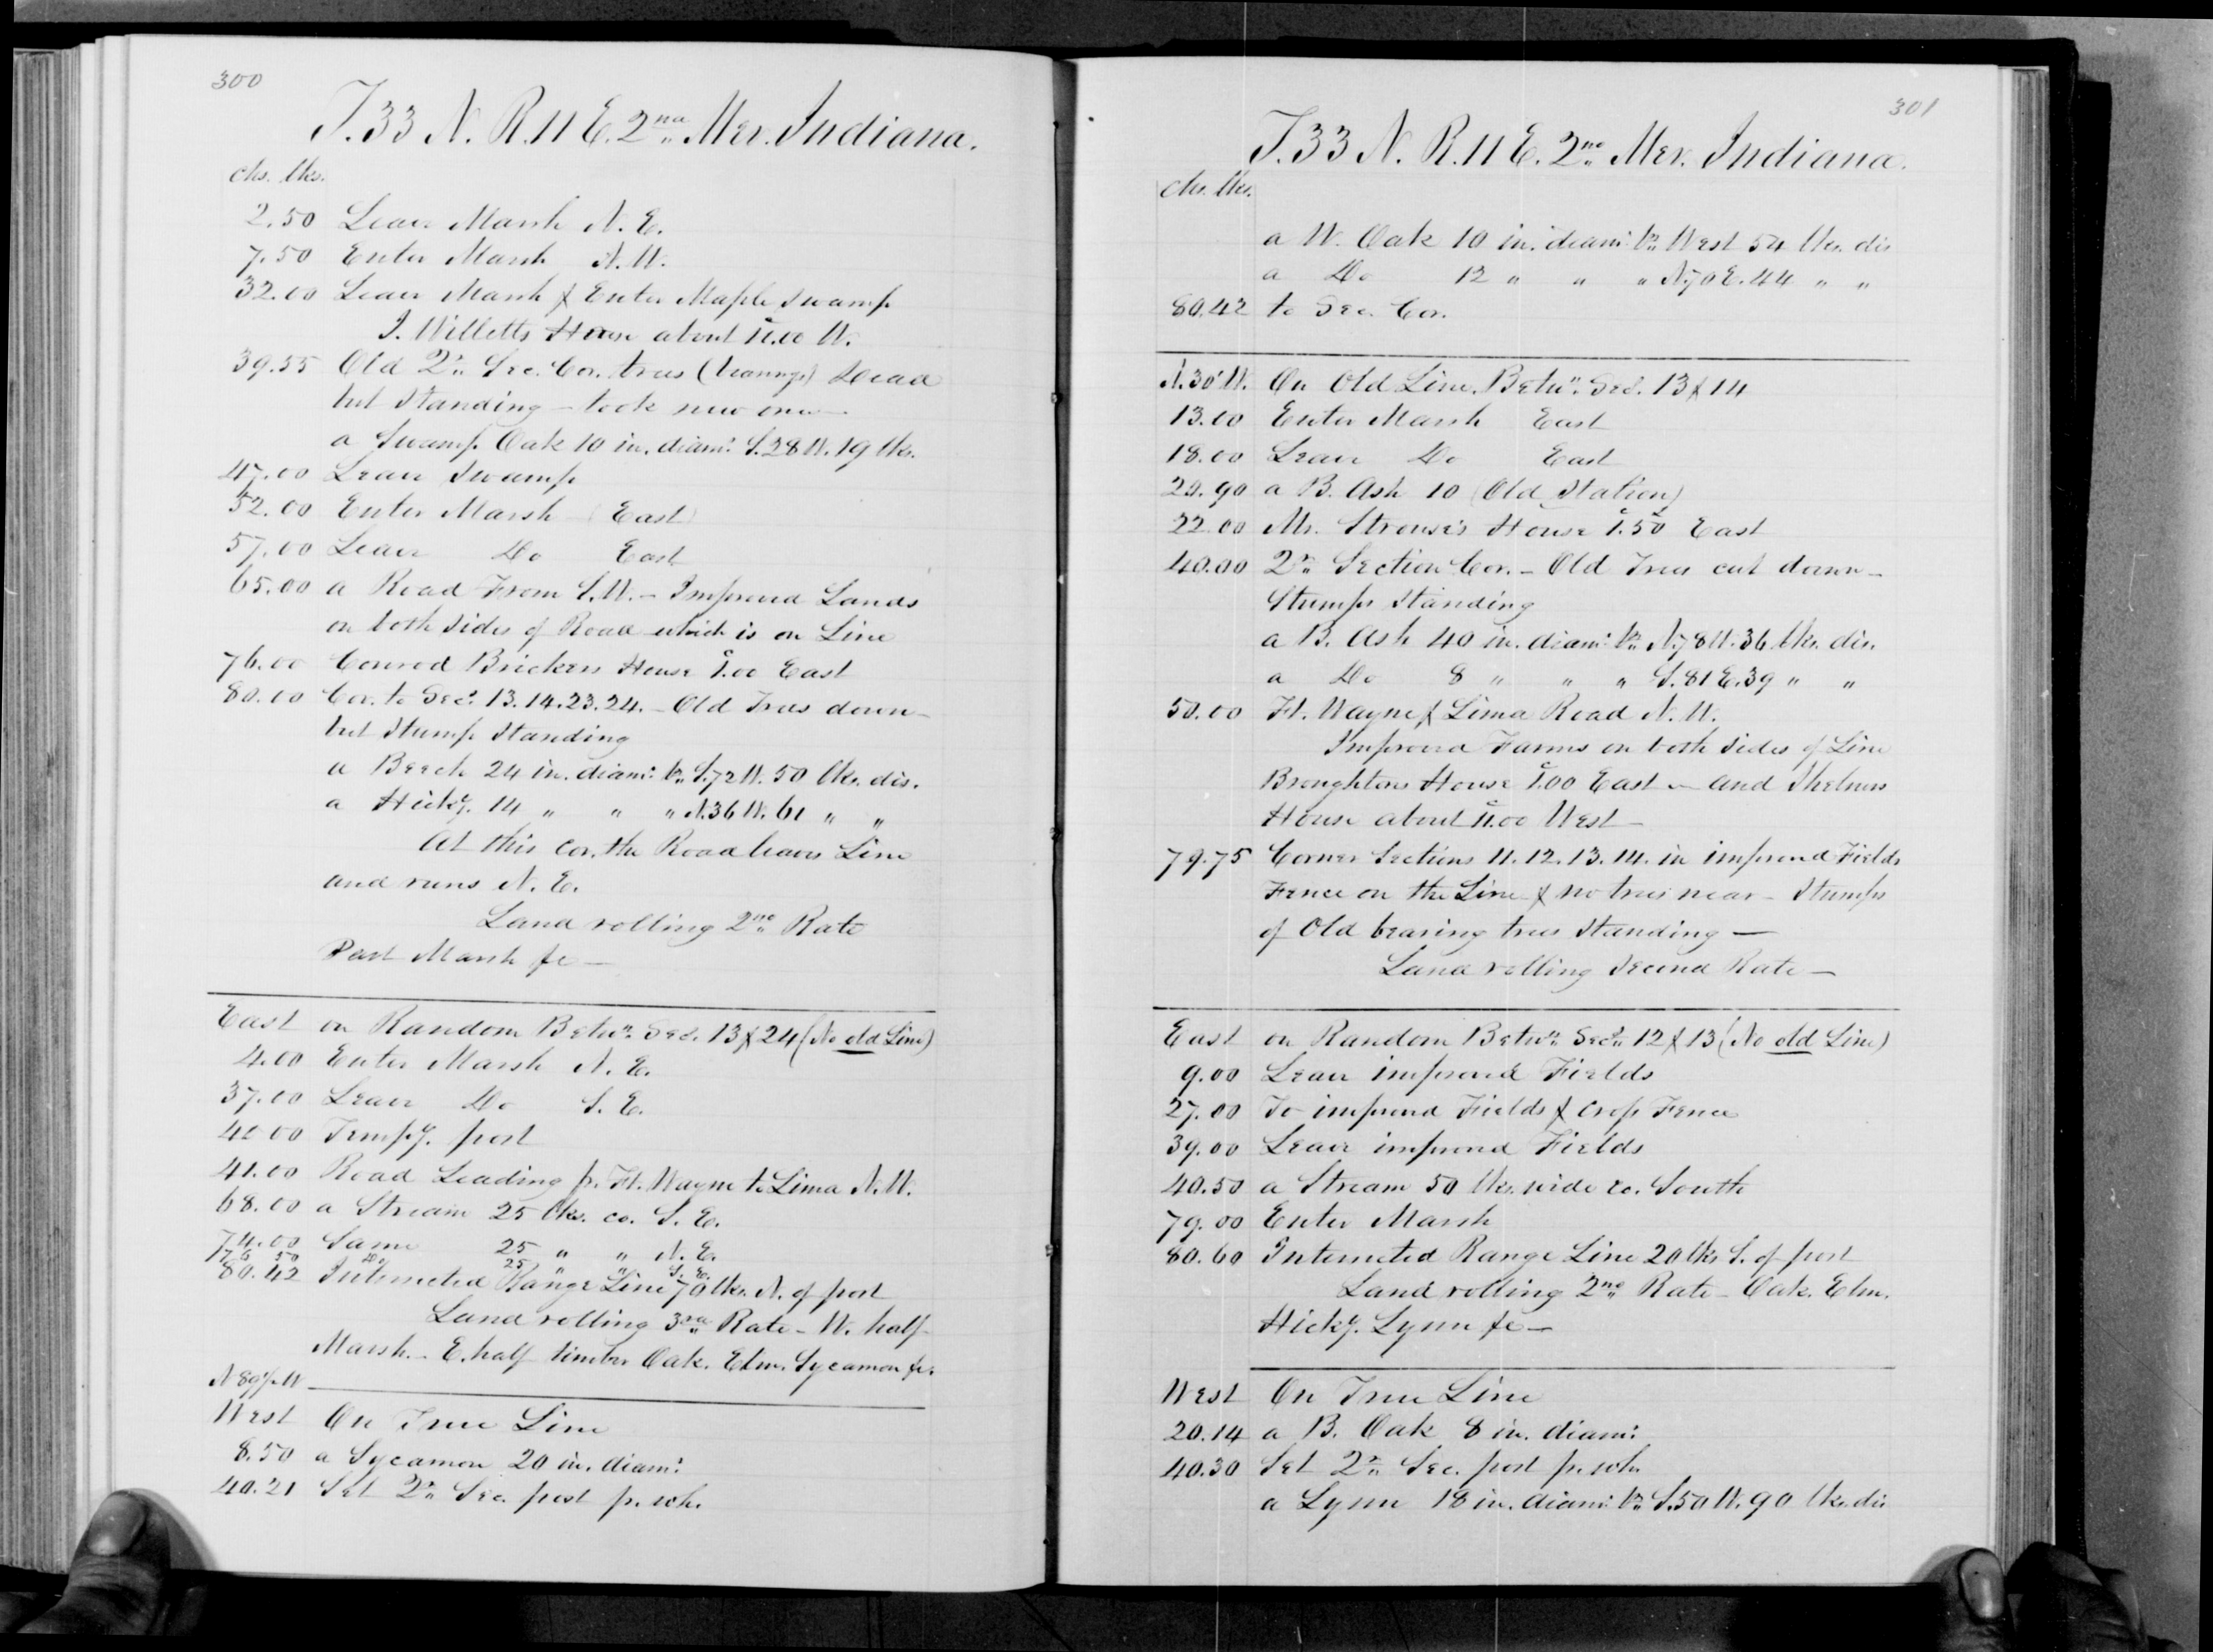 300
T. 33 N. R. 11 E. 2nd Mer. Indiana.
chs. lks.
2.50 Leave Marsh N. E.
7.50 Enter Marsh N. W.
32.00 Leave Marsh & Enter Maple Swamp
I. Willetts House about 11.00 W.
39.55 Old 2r. Sec. Cor. trees (bearings) Dead
but Standing - took new one -
a Swamp Oak 10 in. diam: S. 28 W. 19 lks.
47.00 Leave Swamp
52.00 Enter Marsh (East)
57.00 Leave Do East
65.00 a Road From S. W. - Improved Lands
on both sides of Road which is on Line
76.00 Conrod Brickers House 1.00 East
80.10 Cor. to Sec. 13. 14. 23. 24. - Old Trees down -
but Stump Standing
a Beech 24 in. diam: br. S. 72 W. 50 lks. dis.
a Hicky. 14 " " " N. 36 W. 61 " "
At this Cor. the Road leaves Line
and runs N. E.
Land rolling 2nd Rate
Part Marsh &c -
East on Random Betwn. Secs. 13 & 24 (No old Line)
4.00 Enter Marsh N. E.
37.00 Leave Do S. E.
40.00 Tempy. post
41.00 Road Leading fr. Ft. Wayne to Lima N. W.
68.00 a Stream 25 lks. co. S. E.
74.00 Same 25 " " N. E.
76 50 Do 25 " " S. E.
80.42 Intersected Range Line 70 lks. N. of post
Land rolling 3rd Rate - W. half
Marsh. - E. half timber Oak. Elm. Sycamore &c.
N 89¾ W
West On True Line
8.50 a Sycamore 20 in. diam:
40.21 Set 2r. Sec. post p. sch.
301
T. 33 N. R. 11 E. 2nd Mer. Indiana.
chs. lks.
a W. Oak 10 in. diam: br. West 54 lks. dis
a Do 12 " " " N. 70 E. 44 " "
80.42 to Sec. Cor.
N. 30' W. On Old Line. Betwn. Secs. 13 & 14
13.00 Enter Marsh East
18.00 Leave Do East
20.90 a B. Ash 10 (Old Station)
22.00 Mr. Strouse's House 1.50 East
40.00 2r. Section Cor. - Old Trees cut down -
Stumps Standing
a B. Ash 40 in. diam: br. N. 78 W. 36 lks. dis.
a Do 8 " " " S. 81 E. 39 " "
50.00 Ft. Wayne & Lima Road N. W.
Improved Farms on both sides of Line
Broughtons House 1.00 East - and
House about 11.00 West -
79.75 Corner Sections 11. 12. 13. 14. in improved Fields
Fence on the Line & no trees near - Stumps
of Old bearing trees Standing -
Land rolling Second Rate -
East on Random Betwn. Secs. 12 & 13 (No old Line)
9.00 Leave improved Fields
27.00 To improved Fields & Crop Fence
39.00 Leave improved Fields
40.50 a Stream 50 lks. wide co. South
79.00 Enter Marsh
80.60 Intersected Range Line 20 lks S. of post
Land rolling 2nd Rate - Oak. Elm.
Hicky. Lynn &c -
West On True Line
20.14 a B. Oak 8 in. diam:
40.30 Set 2r. Sec. post p. sch.
a Lynn 18 in. diam: br. S. 50 W. 90 lks. dis